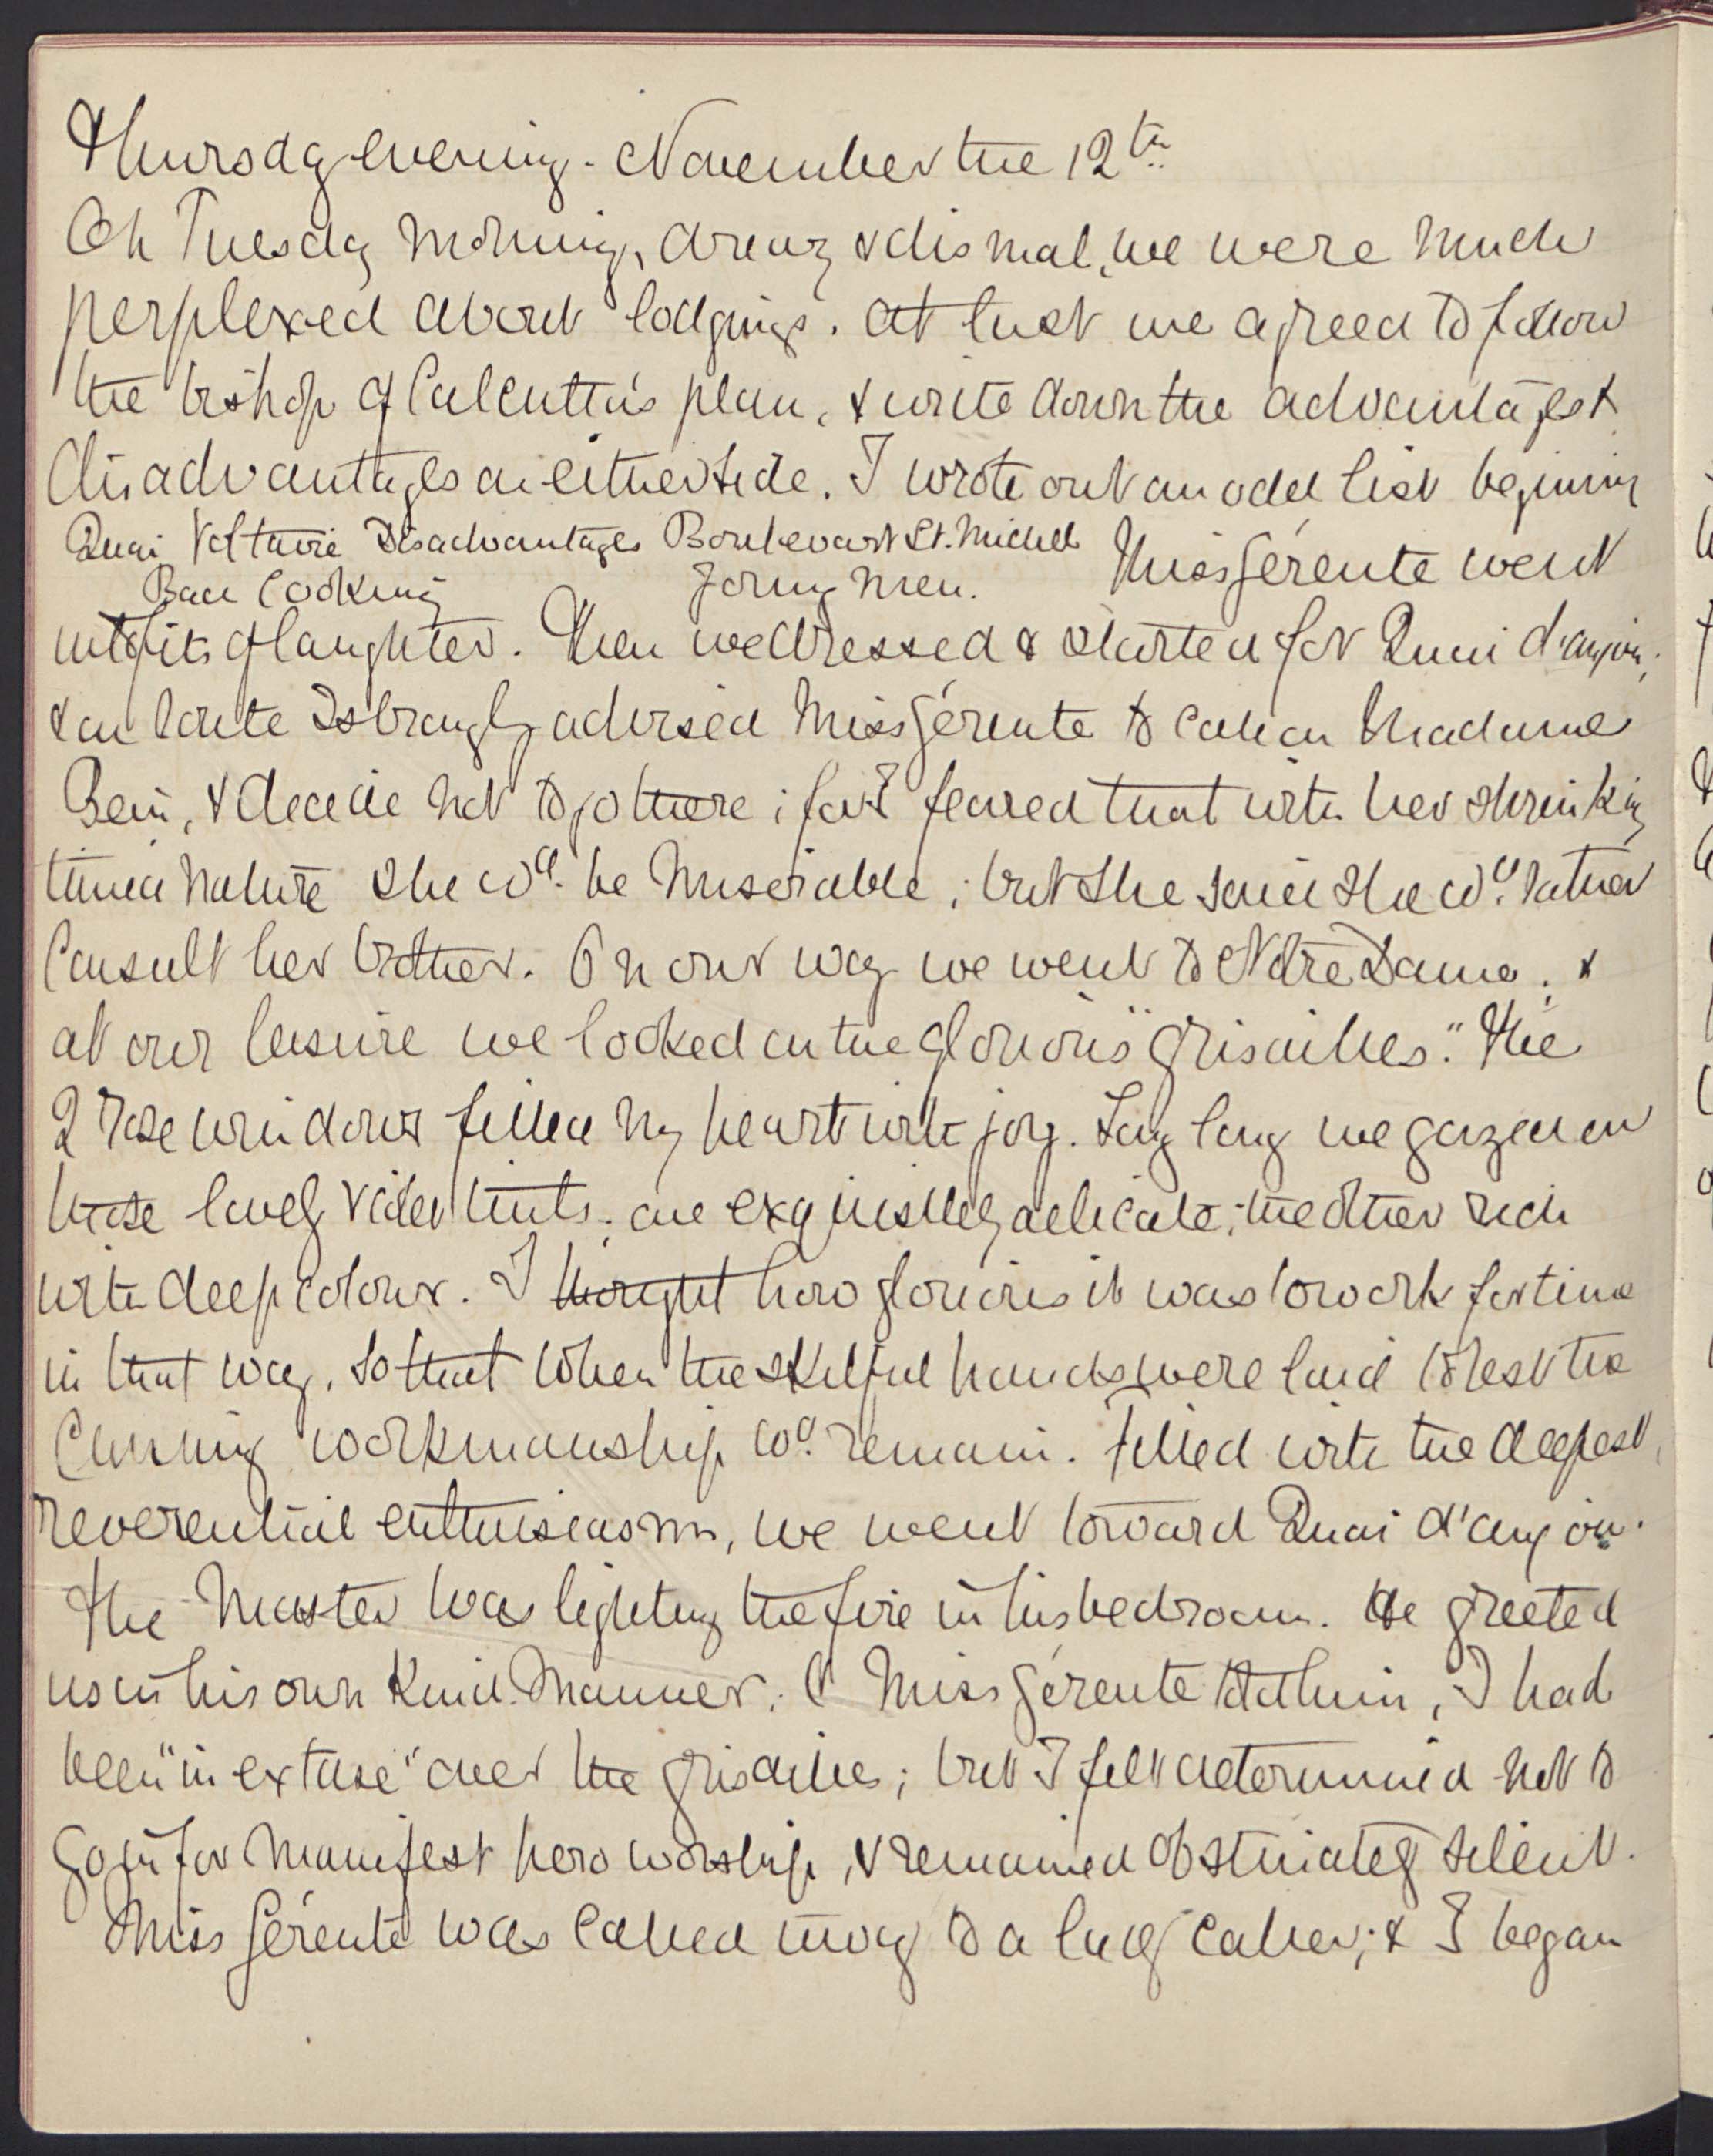 Thursday evening. November the 12th
On Tuesday morning, dreary & dismal, we were much
perplexed about lodgings. At last we agreed to follow
the bishop of Calcutta's plan, & write down the advantages &
disadvantages on either side. I wrote out an odd list begining
Quai Voltaire Disadvantages Boulevart St. Michell
Bad Cooking Young men. Miss Gérente went
into fits of laughter. Then we dressed & started for Quai d'anjou,
& en route I strongly advised Miss Gérente to call on Madame
Bein, & decide not to go there; for I feared that with her shrinking
timid nature she wd. be miserable; but she said she wd. rather
consult her brother. On our way we went to Notre Dame, &
at our leisure we looked on the glorious "grisailles." The
2 rose windows filled my heart with joy. Long long we gazed on
those lovely violet tints; one exquisitely delicate; the other rich
with deep colour. I thought how glorious it was to work for time
in that way, so that when the skilful hands were laid to rest the
cunning workmanship wd. remain. Filled with the deepest
reverential enthusiasm, we went toward Quai d'anjou.
The Master was lighting the fire in his bedroom. He greeted
us in his own kind manner. Miss Gérente told him, I had
been "in extase" over the grisailles; but I felt determined not to
go in for manifest hero worship, & remained obstinately silent.
Miss Gérente was called away to a lady caller; & I began